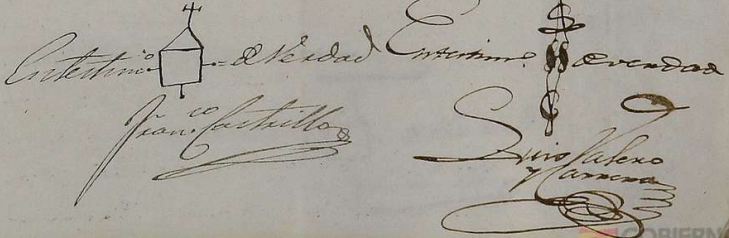 En testimo de Verdad
Franco Castrillo
En testimo de verdad
Luis Valero
y Carrera
GOBIERN